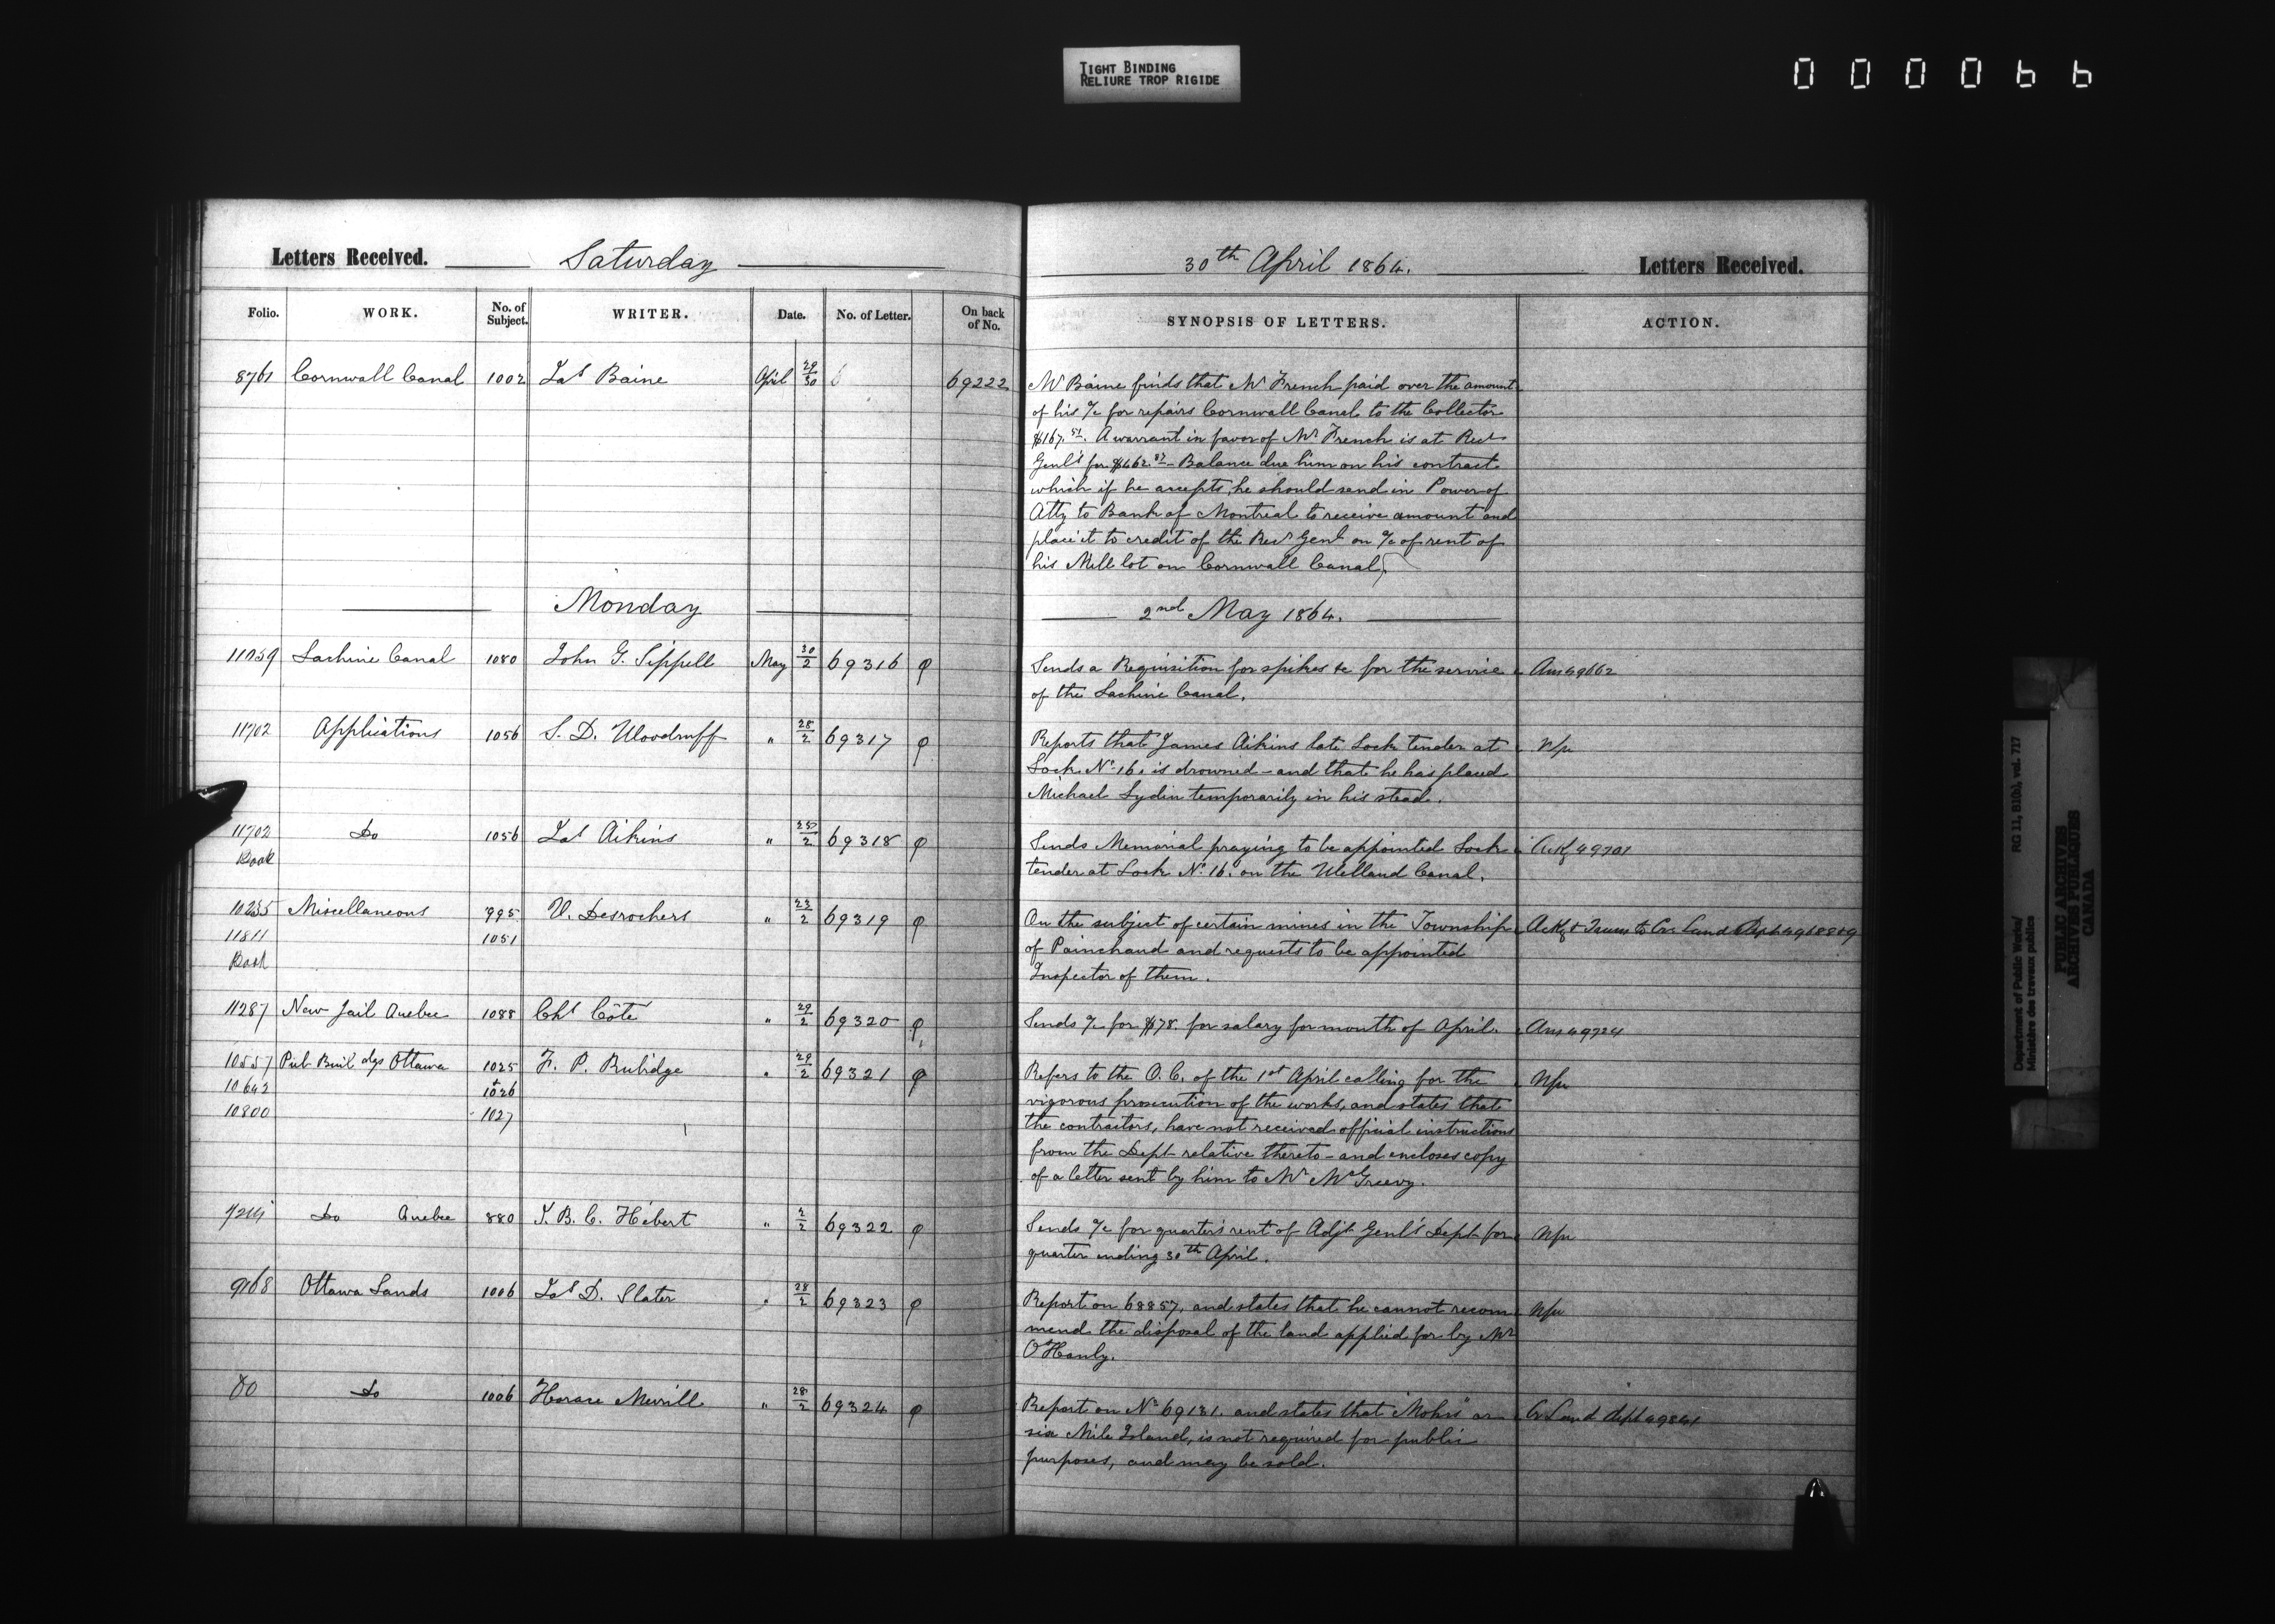 TIGHT BINDING
RELIURE TROP RIGIDE
000066
Letters Received. Saturday
30th April 1864. Letters Received.
Folio. WORK. No. of Subject. WRITER. Date. No. of Letter. On back of No.
SYNOPSIS OF LETTERS. ACTION.
8761 Cornwall Canal 1002 Jas Baine April 29/30 69222
Mr Baine finds that Mr French paid over the amount
of his a/c for repairs Cornwall Canal to the Collector
$167.51. A warrant in favor of Mr French is at Recr
Genl's for $462. Balance due him on his contract
which if he accepts, he should send in Power of
Atty to Bank of Montreal to receive amount and
place it to credit of the Recr Genl on a/c of rent of
his Mill lot on Cornwall Canal.
Monday
2nd May 1864.
11059 Lachine Canal 1080 John G. Sippell May 30/2 69316
Sends a Requisition for spikes &c for the service
of the Lachine Canal.
Ans 49662
11702 Applications 1056 S. D. Woodruff " 28/2 69317
Reports that James Aikins late Lock tender at
Lock No 16. is drowned - and that he has placed
Michael Lydin temporarily in his stead.
11702 Do 1056 Jas Aikins " 25/2 69318
Book
Sends Memorial praying to be appointed Lock
tender at Lock No 16. on the Welland Canal.
Ackg 49701
10235 Miscellaneous 995 V. Desrochers " 23/2 69319
11811 1051
Book
On the subject of certain mines in the Township
of Painchaud and requests to be appointed
Inspector of them.
Ackg & Trans to Cr. Land Dept
11287 New Jail Quebec 1088 Chs Côté " 29/2 69320
Sends a/c for $78. for salary for month of April.
Ans 49724
10557 Pub Buildgs Ottawa 1025 F. P. Rubidge " 29/2 69321
10642 + 1026
10800 1027
Refers to the O. C. of the 1st April calling for the
vigorous prosecution of the works, and states that
the contractors, have not received official instructions
from the Dept relative thereto - and encloses copy
of a letter sent by him to Mr McGreevy.
Do Quebec 880 J. B. C. Hébert " 2/2 69322
Sends a/c for quarter's rent of Adjt Genl's Dept for
quarter ending 30th April.
9168 Ottawa Lands 1006 Jas D. Slater " 28/2 69323
Report on 68857, and states that he cannot recom
mend the disposal of the land applied for by Mr
O'Hanly.
Do Do 1006 Horace Merrill " 28/2 69324
Report on No 69131. and states that "Mohrs" or
six Mile Island, is not required for public
purposes, and may be sold.
Cr Land dept 49841
Department of Public Works/
Ministère des travaux publics
RG 11, B1(b), vol. 717
PUBLIC ARCHIVES
ARCHIVES PUBLIQUES
CANADA